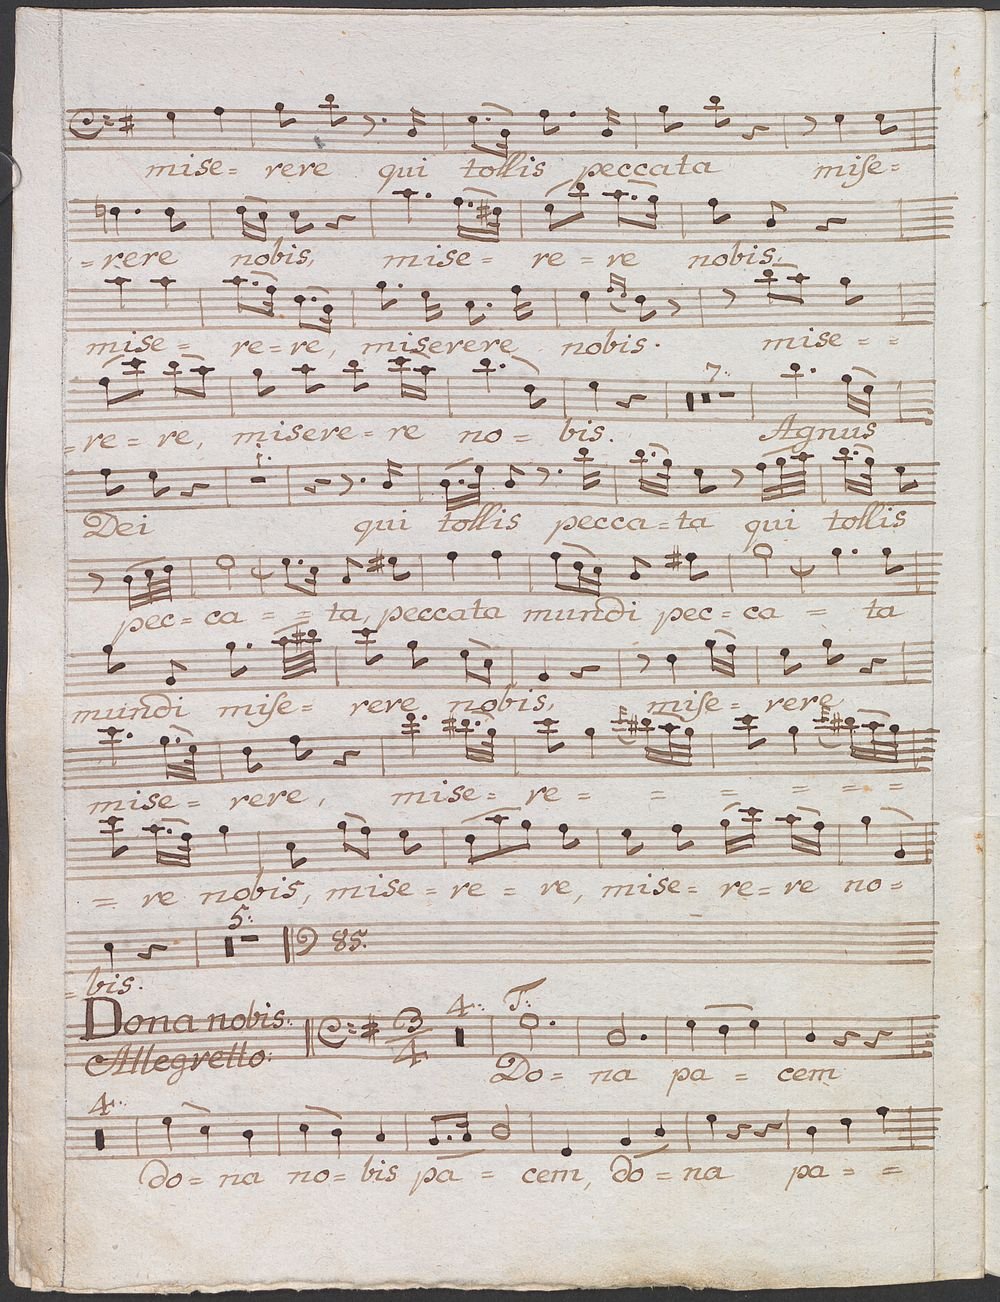 mise= rere qui tollis peccata mise=
=rere nobis, mise= re=re nobis,
mise= re=re, miserere nobis. mise= =
=re=re, misere=re no= bis. Agnus
7.
1.
Dei qui tollis pecca=ta qui tollis
pec=ca = = ta, peccata mundi pec=ca = ta
mundi mise= rere nobis, mise= rere
mise= rere, mise= re= = = = = =
= re nobis, mise=re=re, mise= re=re no=
5.
85.
=bis.
Dona nobis. 3/4 4. T.
Allegretto.
Do= na pa = cem
4.
do=na no=bis pa = cem, do=na pa= =